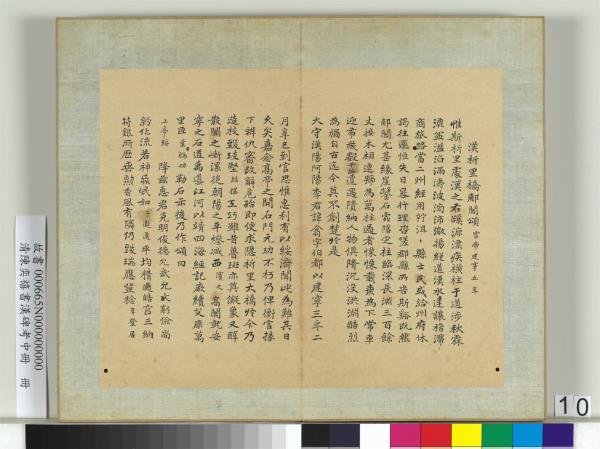 漢析里橋郙閣頌 靈帝建寧五年
惟斯析里處漢之右谿源漂疾橫柱于道涉秋霖
漉盆溢滔滿濤波滂沛激揚絕道漢水逆讓稽滯
商旅路當二州經用沮縣士民或給州府休
謁往還恒失日晷行理咨嗟郡縣所苦斯谿既然
郙閣尤甚緣崖鑿石處隱定柱臨深長淵三百餘
丈接木相連號為萬柱過者慄慄載乘為下常車
迎布歲數千兩遭遇隤納人物俱隋沉沒洪淵酷烈
為禍自古迄今莫不創楚於是
太守漢陽阿陽李君諱翕字伯都以建寧三年二
月辛巳到官思惟惠利有以綏濟聞此為難其日
久矣嘉念高帝之開石門元功不朽乃俾衡官掾
下辨仇審改解危殆即便求隱析里大橋於今乃
造校致攻堅
工巧雖昔魯班亦其儗象又醳
散關之嶃漯從朝陽之平燥減西
高閣就安
寧之石道禹導江河以靖四海經記厥續艾康萬
里臣
勒石示後乃作頌曰
降茲惠君克明俊德允武允文躬儉尚
約化流若神愛氓如
平均精通晧穹三納
符銀所歷垂勳香風有隣仍致瑞應豐稔
年登居
故書 000665N000000000
清陳奕禧書漢碑考中冊 冊
10